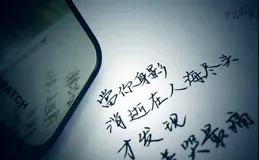 当你身影
消逝在人海尽头
才发现
哭最痛